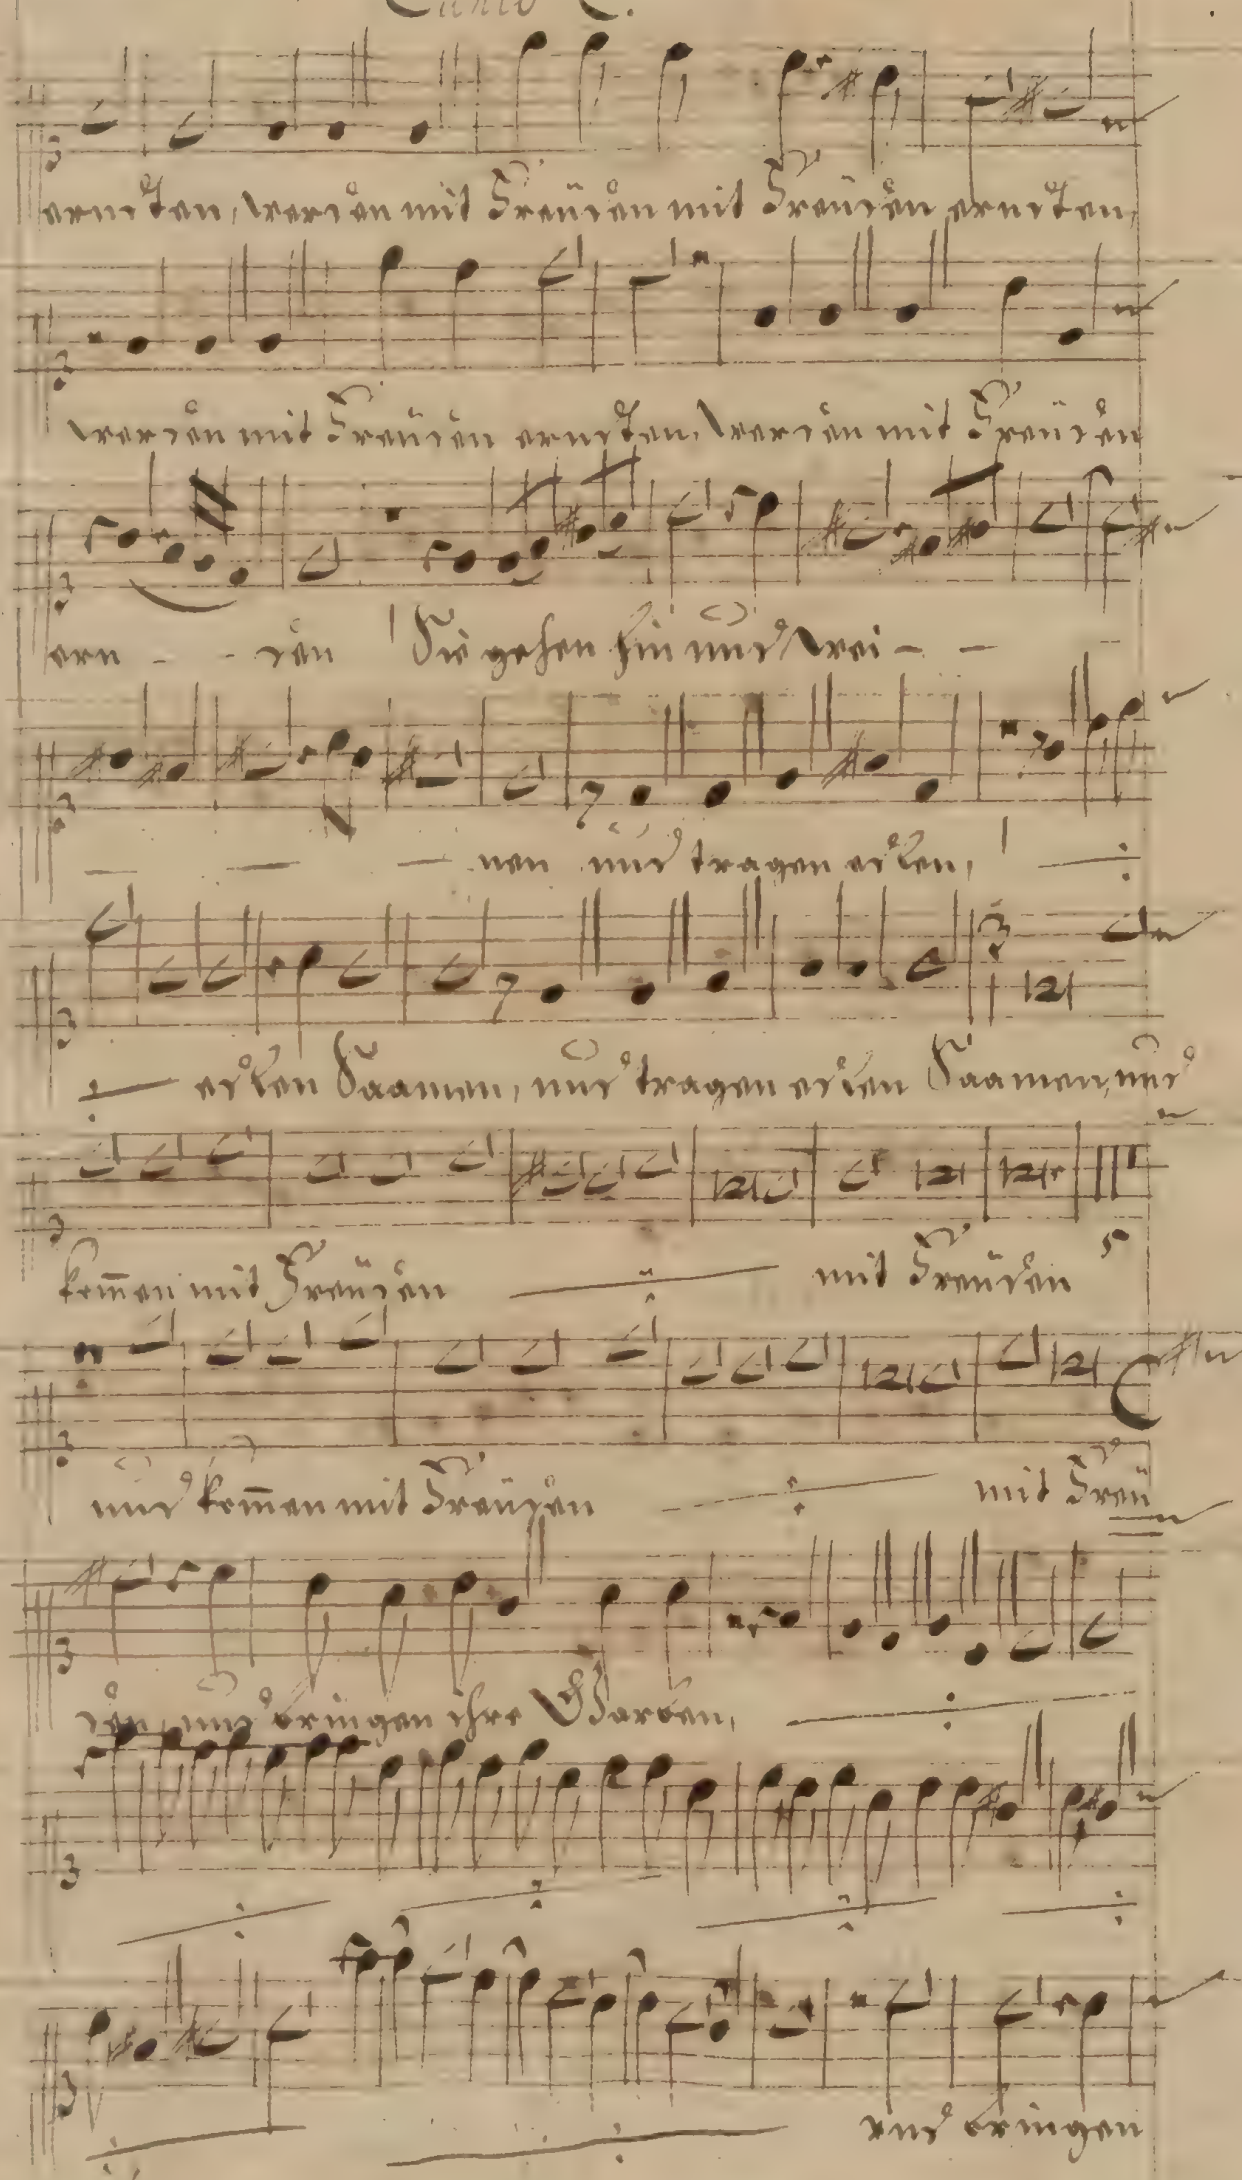 Canto 2.
erndten, werden mit Freüden mit Freüden erndten,
werden mit Freüden erndten, werden mit Freüden
ern - - den Sie gehen hin und wei - -
nen und tragen edlen,
edlen Saamen, und tragen edlen Saamen, und
kom̄en mit Freüden mit Freüden
5
und kom̄en mit Freüden mit Freü
den, und bringen ihre Garben,
und bringen